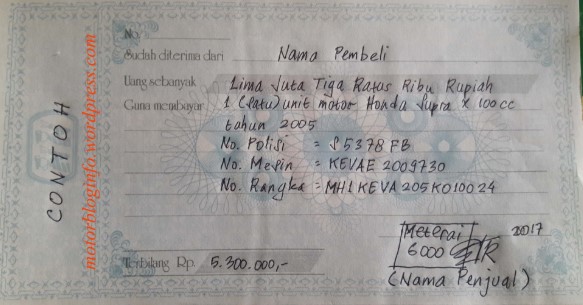 No.
Sudah diterima dari Nama Pembeli
Uang sebanyak Lima Juta Tiga Ratus Ribu Rupiah
Guna membayar 1 (Satu) unit motor Honda Supra X 100cc
tahun 2005
No. Polisi = S 5378 FB
No. Mesin = KEVAE 2009730
No. Rangka = MH1 KEVA 205 K0100 24
2017
Meterai
6000
Terbilang Rp. 5.300.000,-
(Nama Penjual)
CONTOH
motorbloginfo.wordpress.com